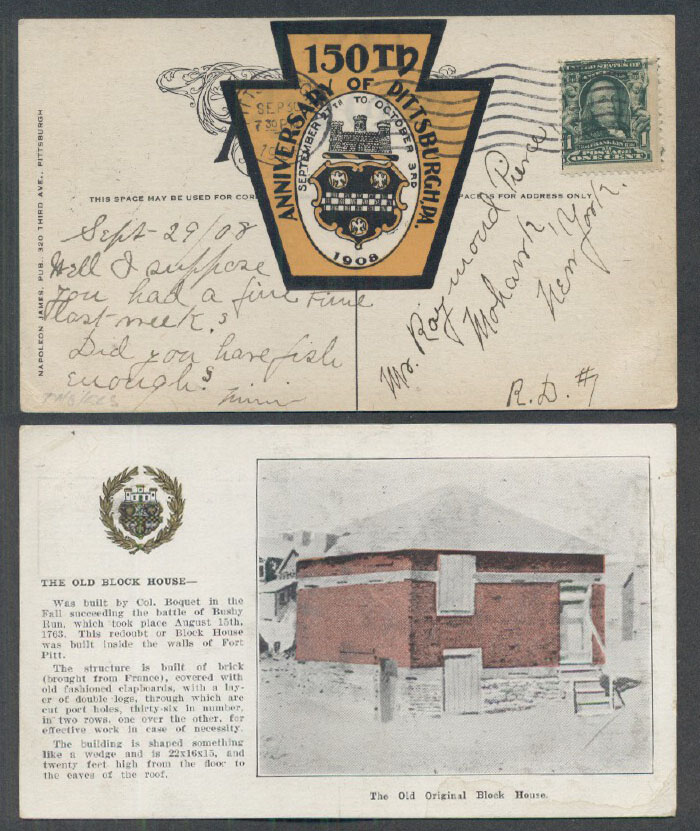 150TH
ANNIVERSARY OF PITTSBURGH, PA.
SEPTEMBER 27TH TO OCTOBER 3RD
1908
SEP 30
7 30 P
UNITED STATES OF
FRANKLIN
1 POSTAGE 1
ONE CENT
THIS SPACE MAY BE USED FOR COR
SPACE IS FOR ADDRESS ONLY
NAPOLEON JAMES, PUB. 320 THIRD AVE., PITTSBURGH
Sept-29/08
Well I suppose
you had a fine time
last week.
Did you have fish
enough.
Mr. Raymond Pierce
Mohawk, N.Y.
New York.
R.D. #1
THE OLD BLOCK HOUSE—
Was built by Col. Boquet in the
Fall succeeding the battle of Bushy
Run, which took place August 15th,
1763. This redoubt or Block House
was built inside the walls of Fort
Pitt.
The structure is built of brick
(brought from France), covered with
old fashioned clapboards, with a lay-
er of double logs, through which are
cut port holes, thirty-six in number,
in two rows, one over the other, for
effective work in case of necessity.
The building is shaped something
like a wedge and is 22x16x15, and
twenty feet high from the floor to
the eaves of the roof.
The Old Original Block House.